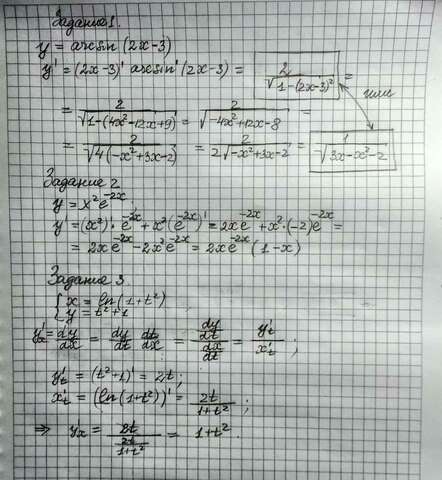 Задание 1.
y = arcsin (2x-3)
y' = (2x-3)' arcsin' (2x-3) = 2/√(1-(2x-3)²) =
или
= 2/√(1-(4x²-12x+9)) = 2/√(-4x²+12x-8) =
= 2/√(4(-x²+3x-2)) = 2/(2√(-x²+3x-2)) = 1/√(3x-x²-2)
Задание 2
y = x²e^(-2x)
y' = (x²)'·e^(-2x) + x²(e^(-2x))' = 2xe^(-2x) + x²·(-2)e^(-2x) =
= 2xe^(-2x) - 2x²e^(-2x) = 2xe^(-2x) (1-x)
Задание 3.
{ x = ln(1+t²)
{ y = t²+1
y'x = dy/dx = dy/dt dt/dx = (dy/dt)/(dx/dt) = y't/x't ;
y't = (t²+1)' = 2t;
x't = (ln(1+t²))' = 2t/(1+t²) ;
⇒ yx = 2t/(2t/(1+t²)) = 1+t².